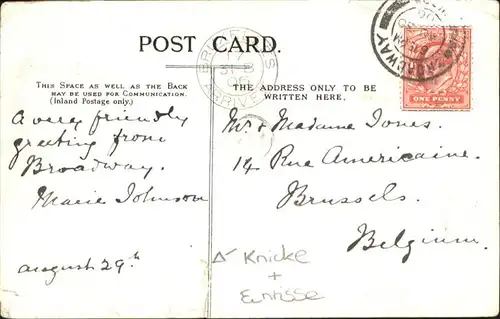 POST CARD.
THIS SPACE AS WELL AS THE BACK
MAY BE USED FOR COMMUNICATION.
(Inland Postage only.)
THE ADDRESS ONLY TO BE
WRITTEN HERE.
A very friendly
greeting from
Broadway.
Marie Johnson
August 29th
Mr & Madame Jones.
14 Rue Americaine.
Brussels.
Belgium.
Knicke
+
Einrisse
ONE PENNY
BROADWAY
ARRIVE